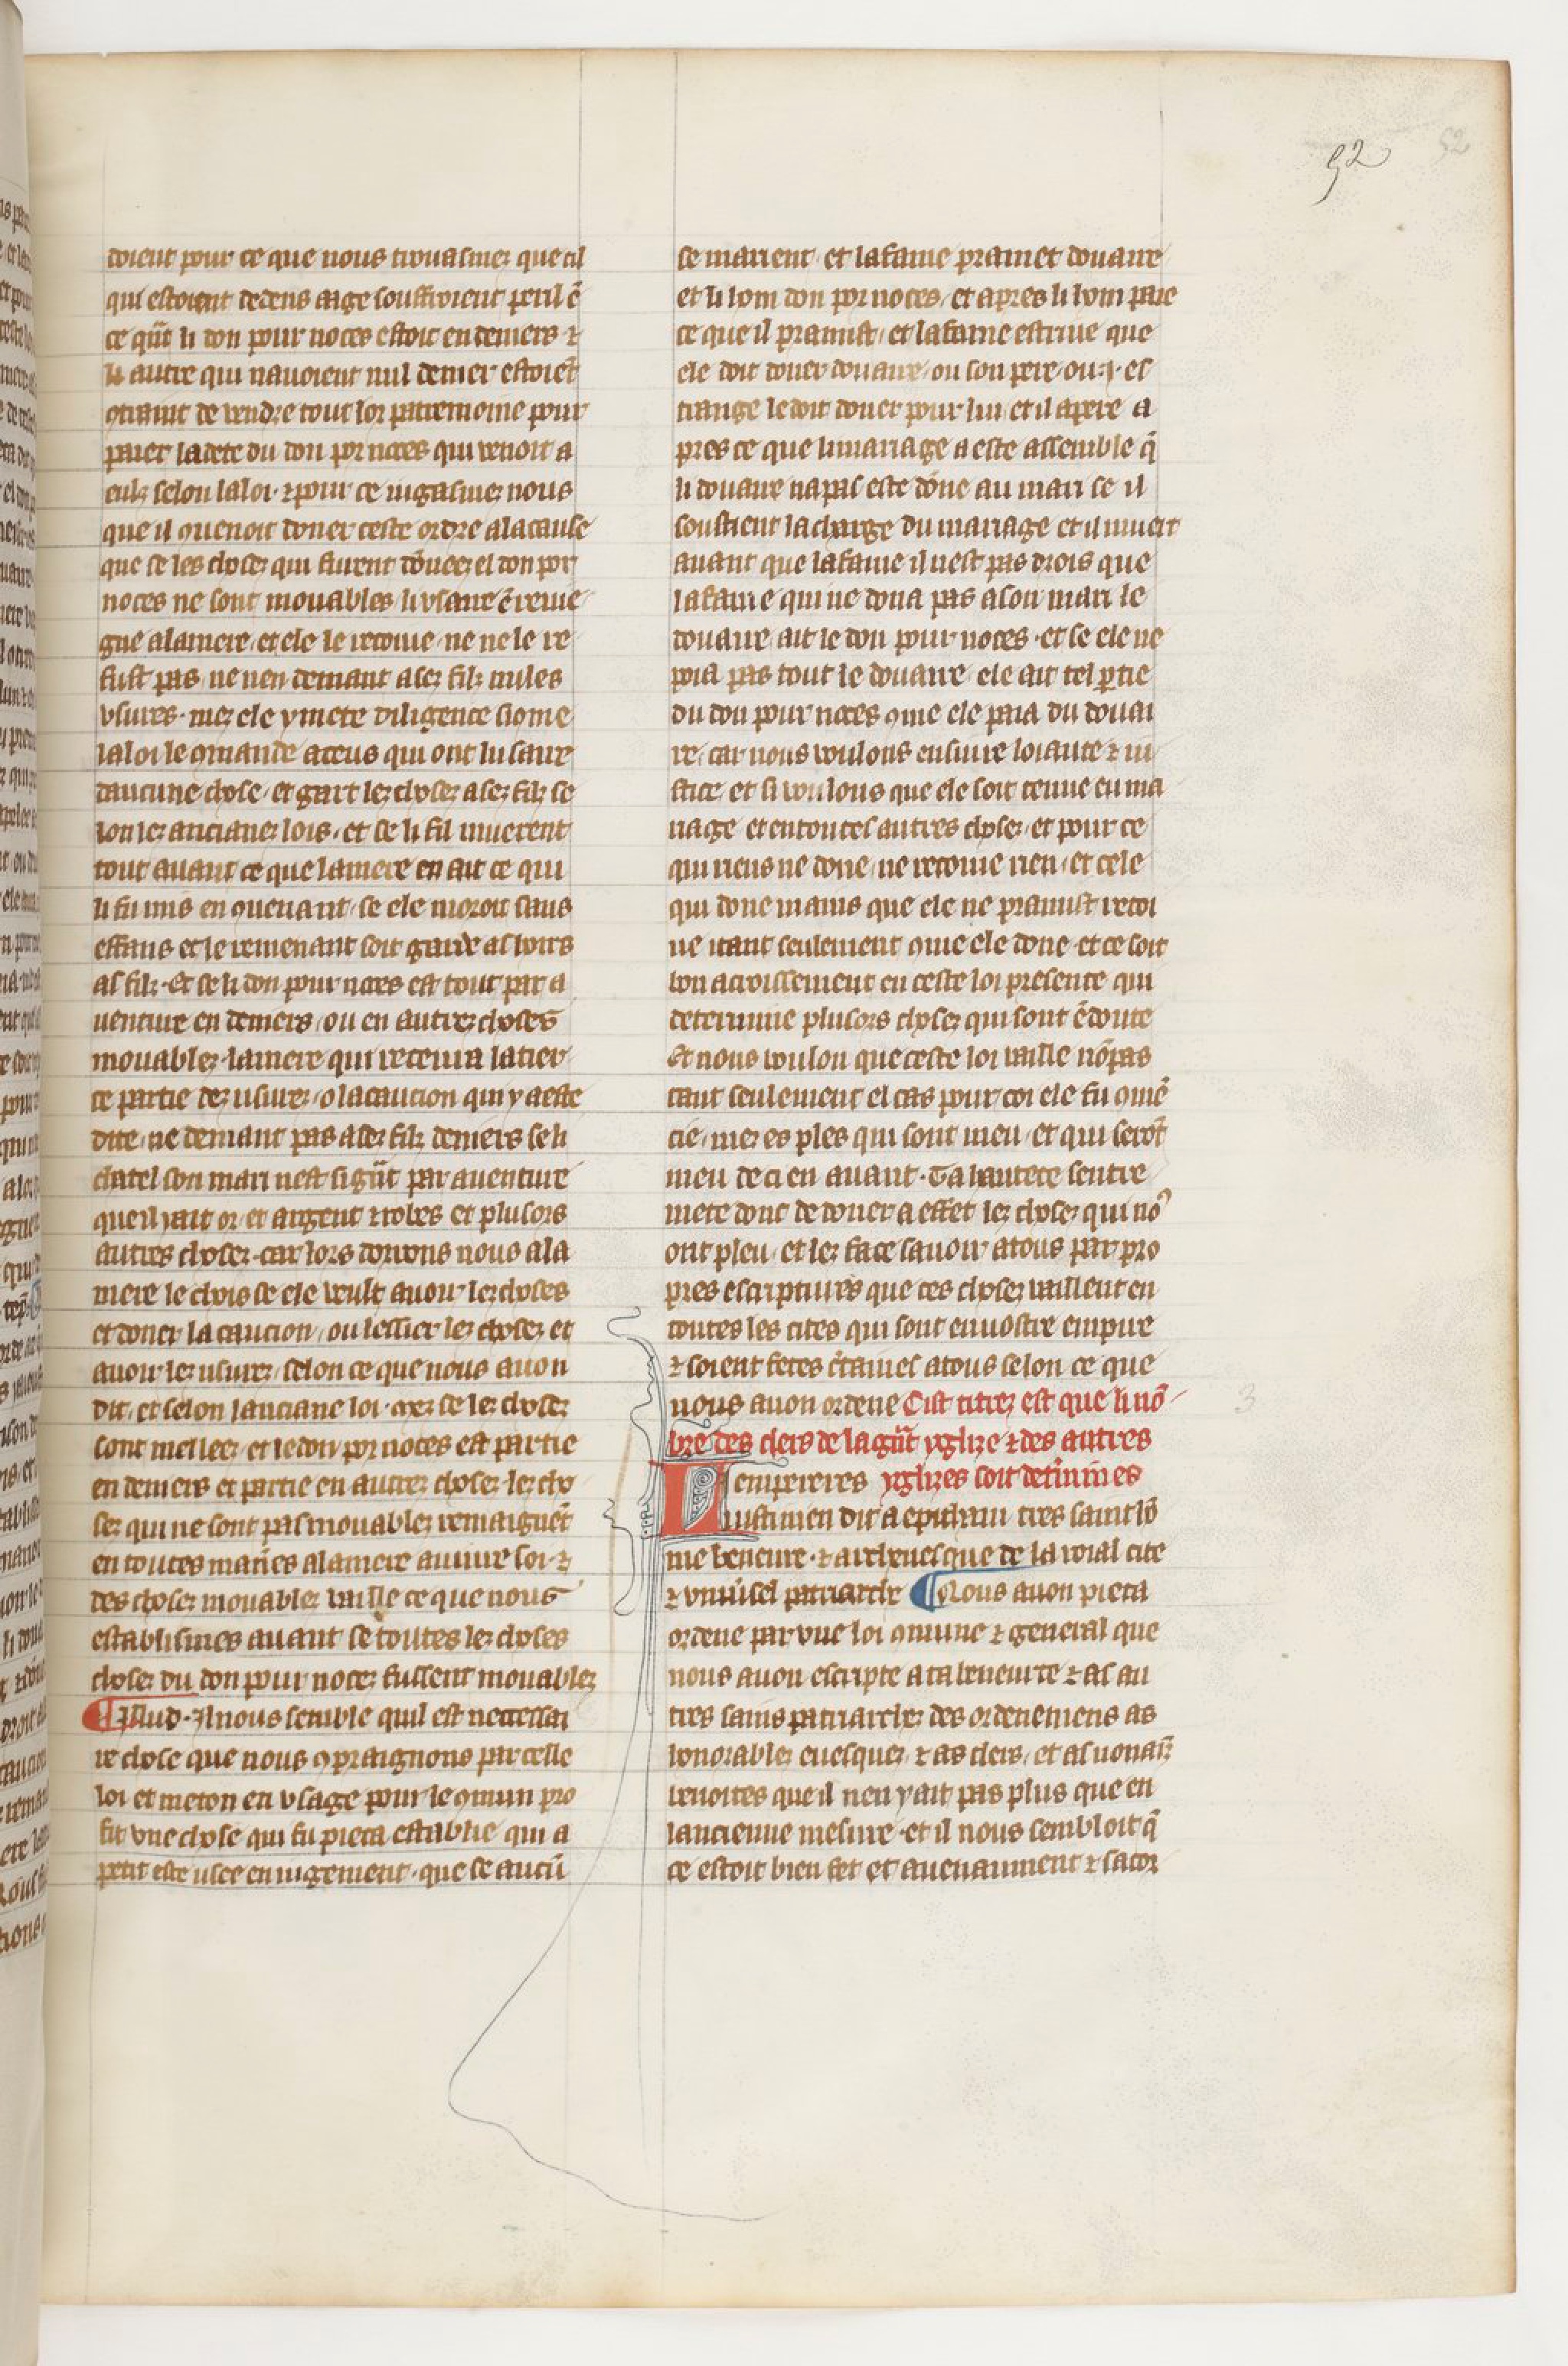 52
doient pour ce que nous trouasmez que cil
qui estoient dedens aage souffroient peril ē
ce qūt li don pour noces estoit en deniers ⁊
li autre qui nauoient nul denier estoiēt
ꝯtraint de vendre tout lor patremoine pour
paier la dete du don por noces qui venoit a
eulz selon la loi · ⁊ pour ce iugasmez nous
que il ꝯuenoit doner ceste ordre a la cause
que se les chosez qui furent dōneez el don por
noces ne sont mouables li vsaire ē veine
gne a la mere / et ele le recoiue / ne ne le re
fust pas / ne nen demant a sez filz nules
vsures · mez ele y mete diligence si ome
la loi le ꝯmande a ceus qui ont lusaire
daucune chose / et gart lez chosez a sez filz se
lon lez ancianez lois · et se li fil muerent
tout auant ce que la mere en ait ce qui
li fu mis en ꝯuenant / se ele moroit sans
effans et le remenant soit garde as hoirs
as filz · Et se li don pour noces est tout par a
uenture en deniers / ou en autrez choses
mouablez · la mere qui retenra la tier
ce partie dez usurez / o la caucion qui y a este
dite / ne demant pas a sez filz deniers se li
chatel son mari nest si gūt par auenture
que il yait or / et argent ⁊ robes et plusors
autres chosez · car lors donons nous a la
mere le chois se ele veult auoir lez choses
et doner la caucion / ou lessier lez chosez et
auoir lez usurez / selon ce que nous auon
dit / et selon lanciane loi · mez se lez chosez
sont melleez / et le don por noces est partie
en deniers et partie en autrez chosez · lez cho
sez qui ne sont pas mouablez remaignēt
en toutes manies a la mere a uiure soi · ⁊
des chosez mouablez vaille ce que nous
establismes auant se toutes lez choses
chosez du don pour nocez fussent mouablez
¶ Illud · Il nous semble quil est necessai
re chose que nous ꝯpraignons par celle
loi et meton en vsage pour le ꝯmun pro
fit vne chose qui fu pieca establie qui a
petit este usee en iugement · que se aucū
se marient · et la fame pramet douaire
et li lom don por noces / et apres li hom paie
ce que il pramist / et la fame estriue que
ele doit doner douaire / ou son pere / ou · ı · es
trange le doit doner pour lui / et il apere a
pres ce que li mariage a este assemble q̄
li douaire na pas este dōne au mari se il
soustient la charge du mariage et il muert
auant que la fame il nest pas drois que
la fame qui ne dona pas a son mari le
douaire ait le don pour noces · et se ele ne
poia pas tout le douaire / ele ait tel ꝑtie
du don pour noces ꝯme ele paia du douai
re / car nous voulons ensuire loiaute ⁊ iu
stice / et si voulons que ele soit tenue en ma
riage et en toutes autres chosez / et pour ce
qui riens ne done / ne recoiue rien / et cele
qui done mains que ele ne pramist recoi
ue itant seulement ꝯme ele done · et ce soit
bon acroissement en ceste loi presente qui
determine plusors chosez qui sont ē doute
Et nous voulon que ceste loi vaille nō pas
tant seulement el cas pour coi ele fu ꝯmē
cie / mez es ples qui sont meu / et qui serōt
meu de ci en auant · Ta hautece sentre
mete dont de doner a effet lez chosez qui noꝰ
ont pleu / et lez face sauoir a tous par pro
pres escriptures que ces chosez vaillent en
toutes les cites qui sont en nostre empire
⁊ soient fetes c̄taines a tous selon ce que
nous auon ordene Cist titrez est que li nō
bre des clers de la gūt yglize ⁊ des autres
Li empereres yglizes soit det̄mines
iustinien dit a epiphani tres saint hō
me beneure · ⁊ archeuesque de la roial cite
⁊ vniūsel patriarche ¶ Nous auon pieca
ordene par vne loi ꝯmune ⁊ general que
nous auon escripte a ta beneurte ⁊ as au
tres sains patriarchez des ordenemens as
honorablez euesquez / ⁊ as clers / et as nonaīz
benoites que il nen yait pas plus que en
lancienne mesure · et il nous sembloit q̄
ce estoit bien fet et auenaument ⁊ sacor
3